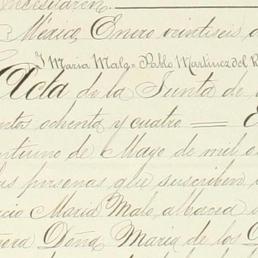 necesitaren
México, Enero veintiseis d
y Maria Malo = Pablo Martinez del R
Acta de la Junta de
ntos ochenta y cuatro — E
ntiuno de Mayo de mil o
las personas que suscriben
cio Maria Malo, albacea d
ñora Doña Maria de los D